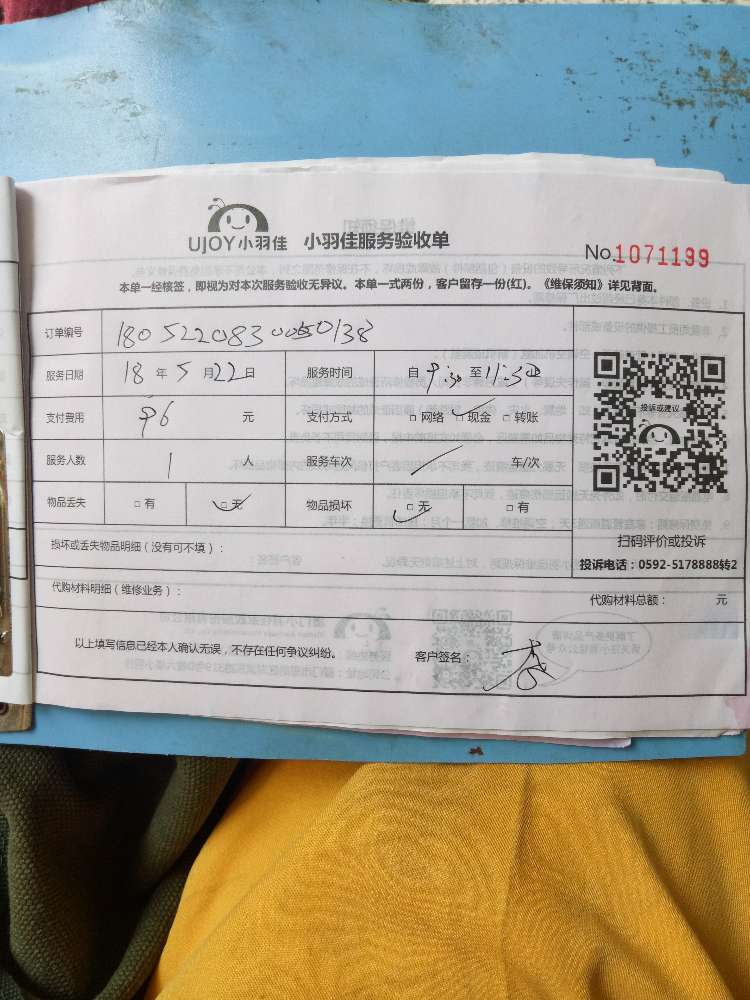 UJOY小羽佳 小羽佳服务验收单
No.1071199
本单一经核签，即视为对本次服务验收无异议。本单一式两份，客户留存一份(红)。《维保须知》详见背面。
订单编号
服务日期 18 年 5 月 22 日 服务时间 自 9:30 至 11:30
支付费用 96 元 支付方式 □ 网络 □ 现金 □ 转账
投诉或建议
服务人数 1 人 服务车次 / 车/次
物品丢失 □ 有 □ 无 物品损坏 □ 无 □ 有
扫码评价或投诉
损坏或丢失物品明细（没有可不填）：
投诉电话：0592-5178888转2
代购材料明细（维修业务）： 代购材料总额： 元
以上填写信息已经本人确认无误，不存在任何争议纠纷。 客户签名：